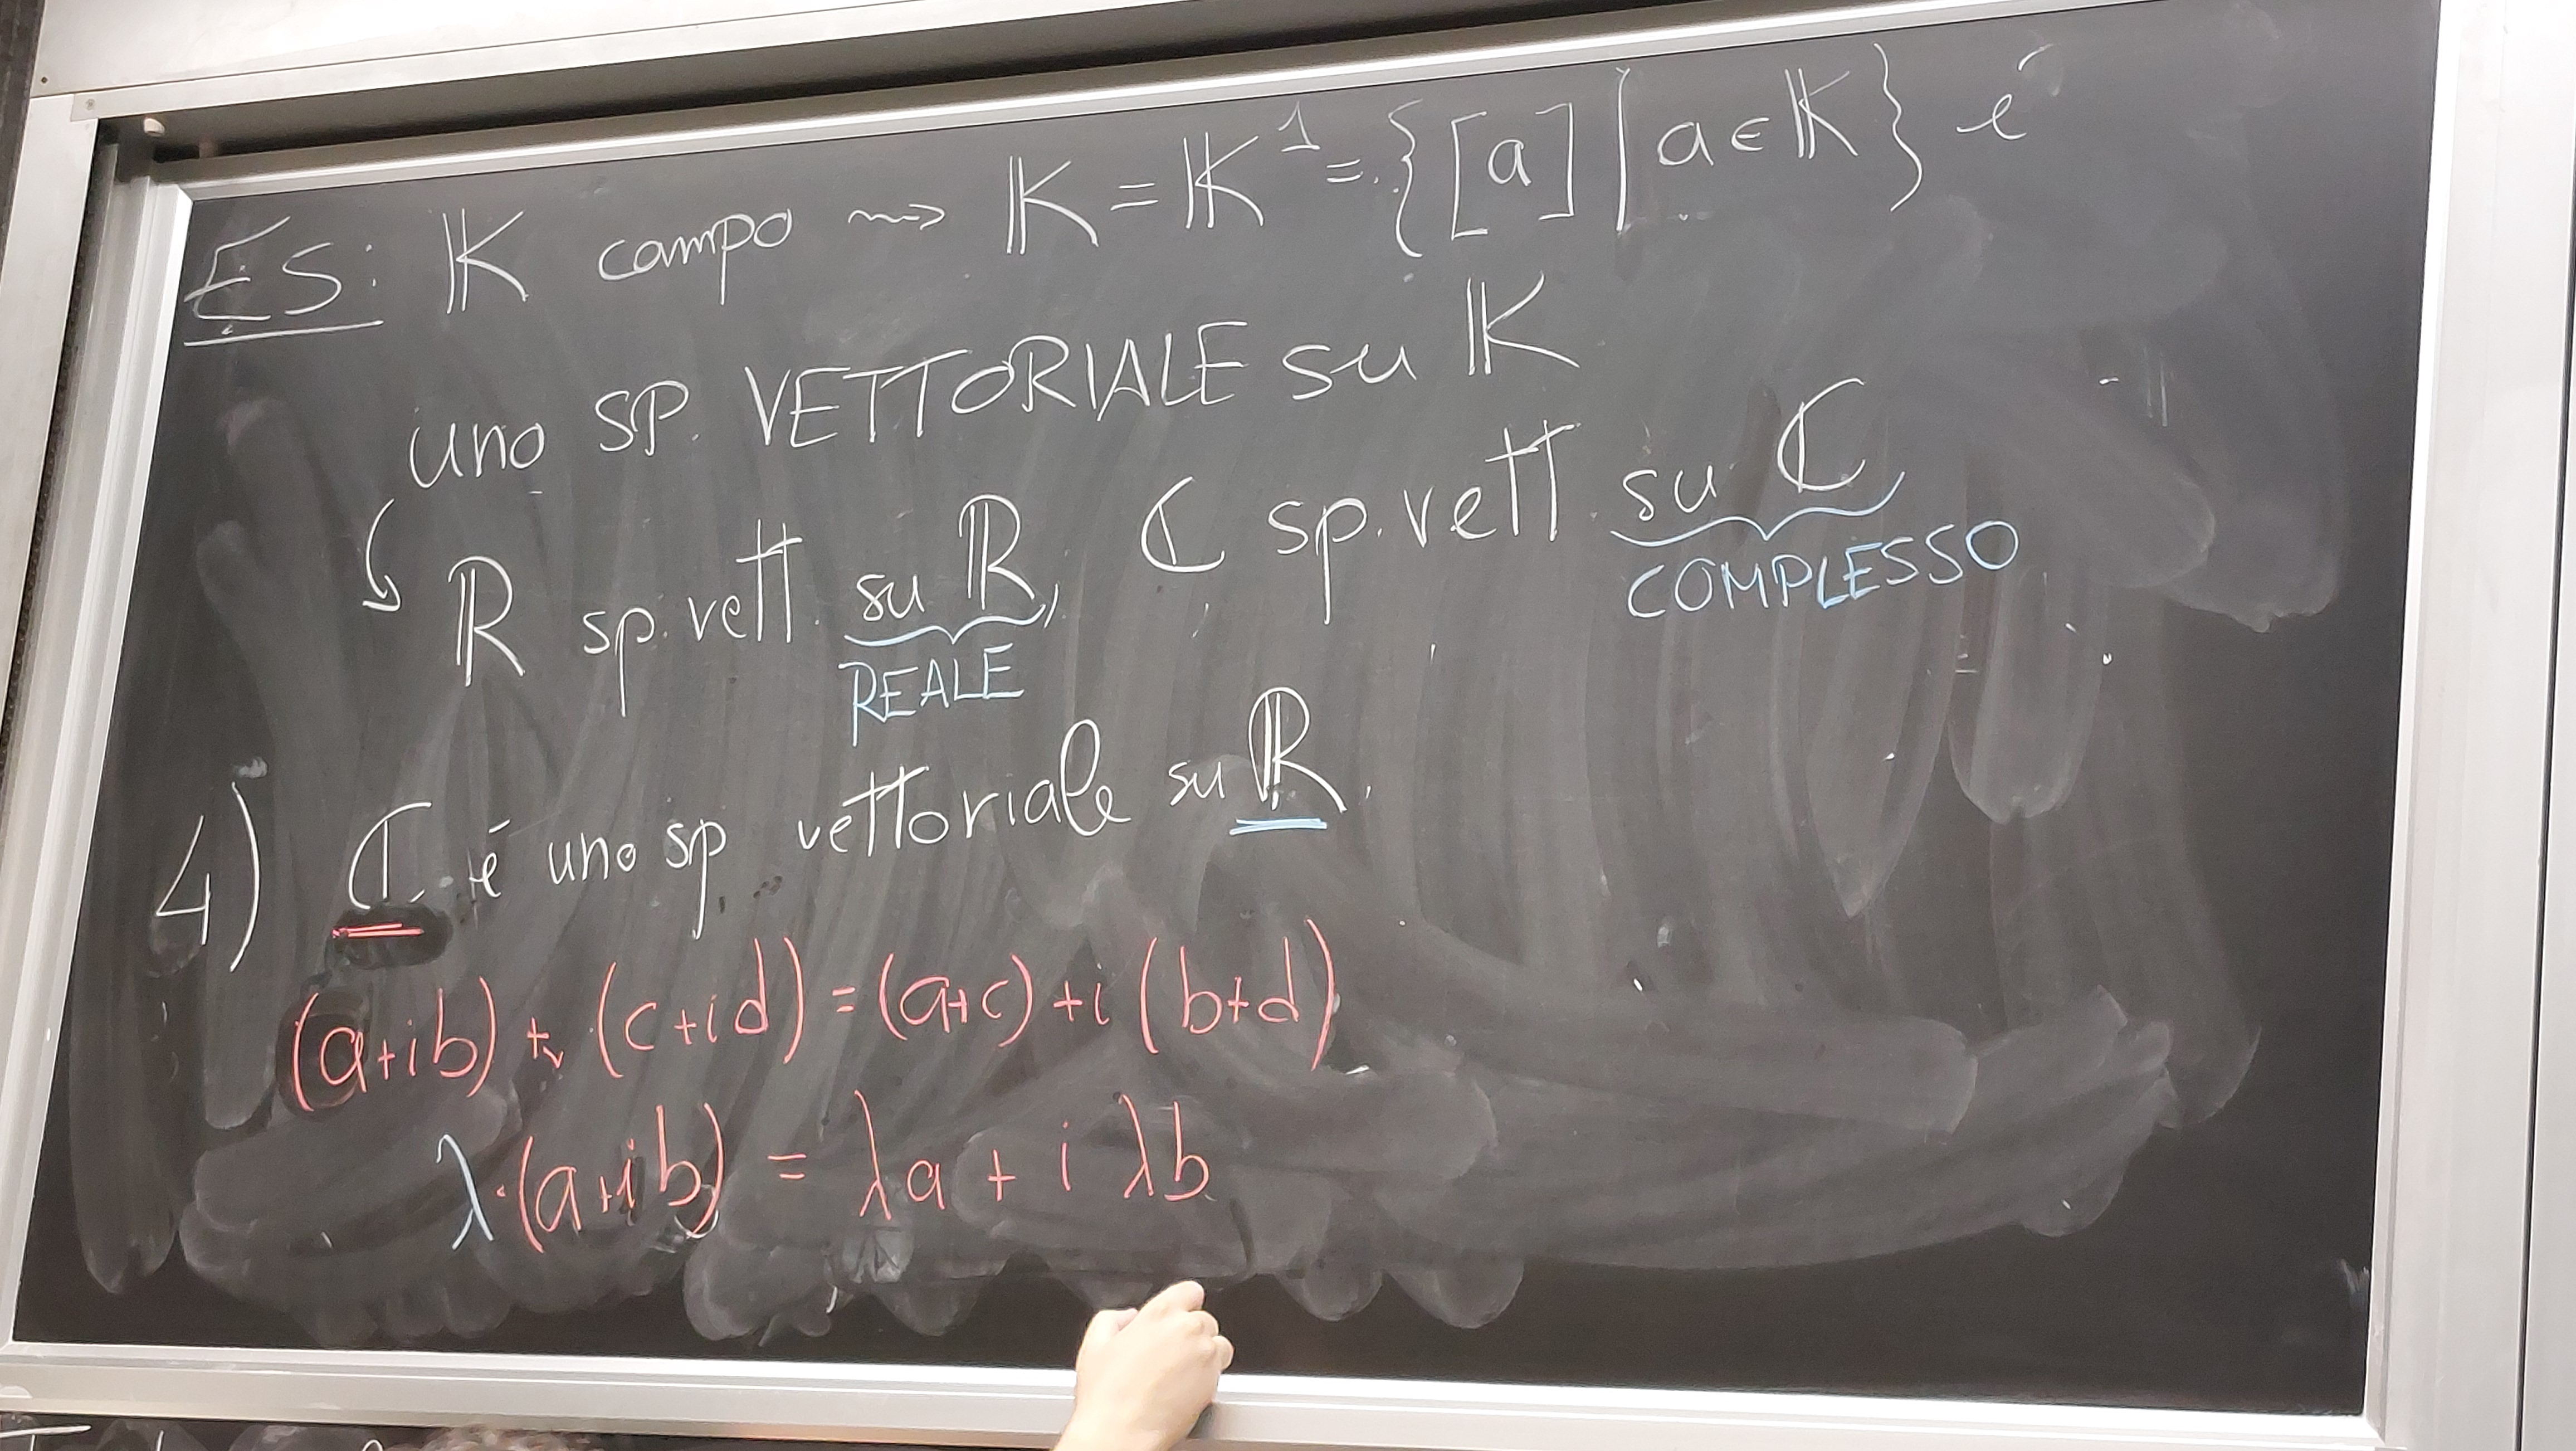 ES: 𝕂 campo ⇝ 𝕂 = 𝕂¹ = {[a] | a ∈ 𝕂} é
uno SP. VETTORIALE su 𝕂
↳ ℝ sp. vett. su ℝ, ℂ sp. vett. su ℂ
REALE COMPLESSO
4) ℂ é uno sp vettoriale su ℝ.
(a+ib) + (c+id) = (a+c) + i (b+d)
λ·(a+ib) = λa + i λb